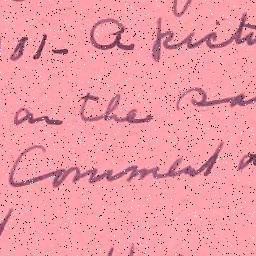 01- A pictu
on the sa
Comment